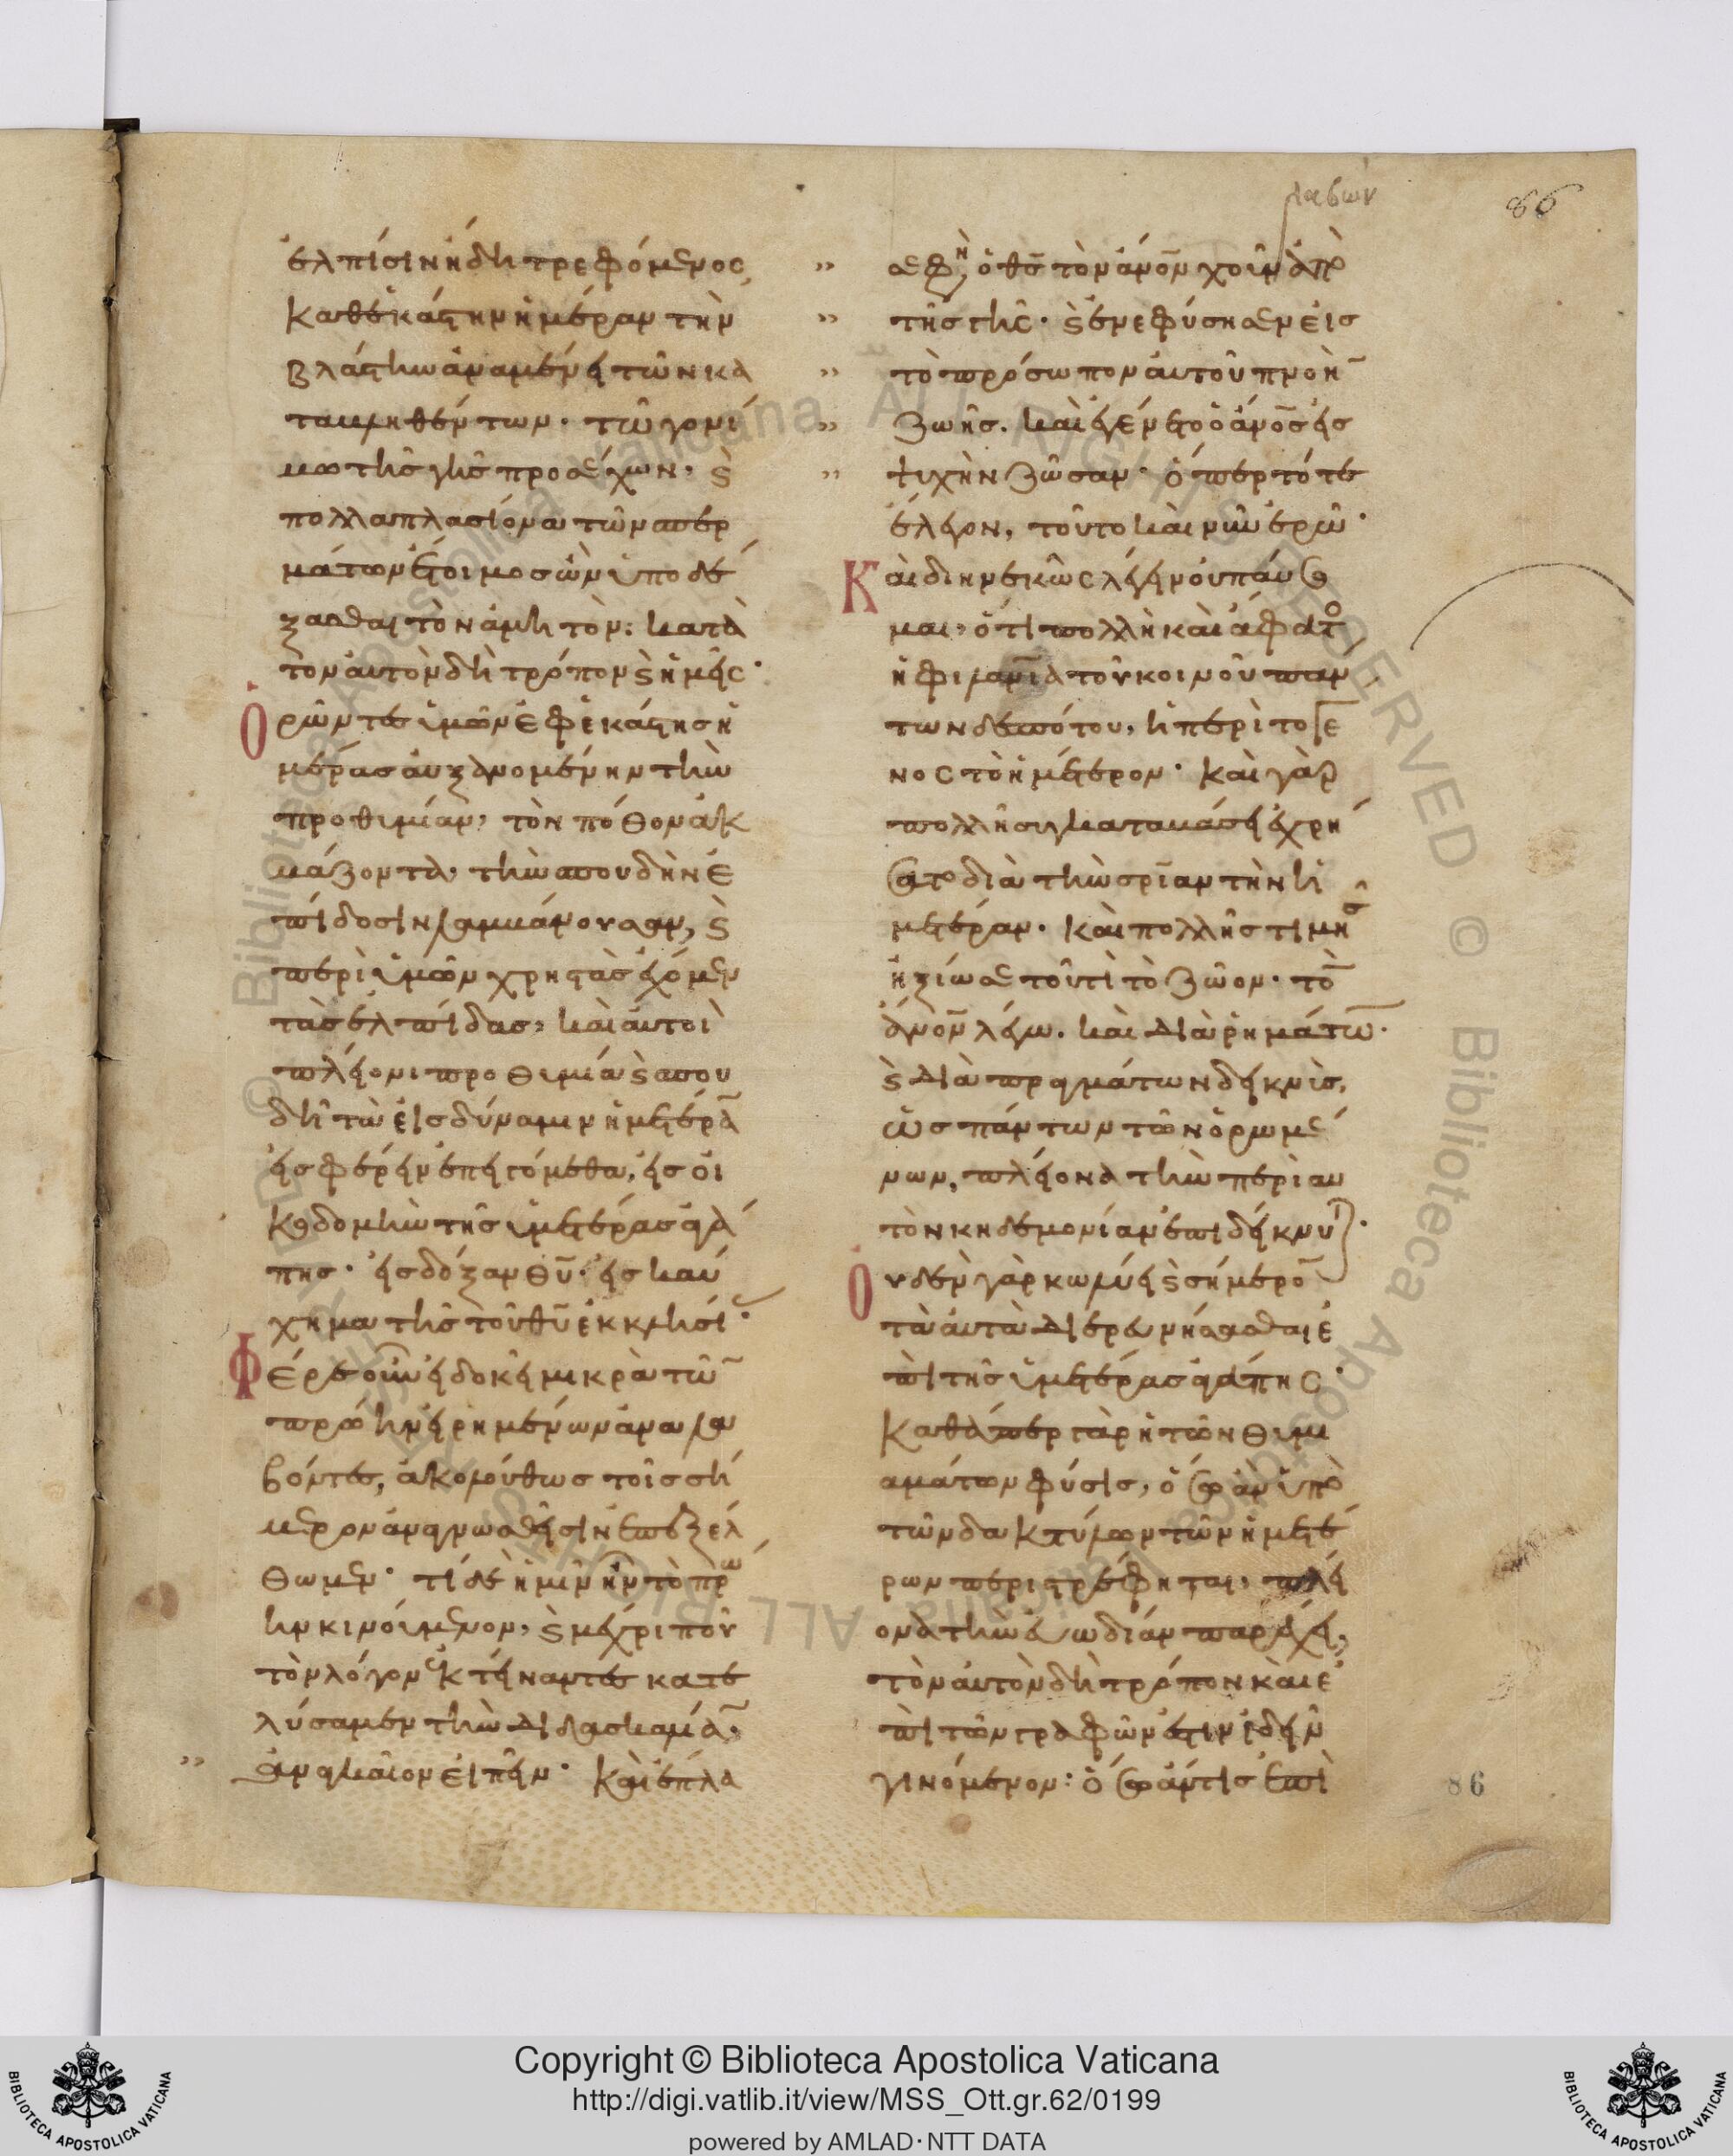 λαβών
86
ἐλπίσιν ἤδη τρεφόμενος,
καθεκάστην ἡμέραν τὴν
βλάστην ἀναμένει τῶν κα
ταβληθέντων· τῶ γονί
μω τῆς γῆς προσέχων, ϛ
πολλαπλασίονα τῶν σπερ
μάτων ἕτοιμος ὢν ὑποδέ
ξασθαι τὸν ἀμητὸν: κατὰ
τὸν αὐτὸν δὴ τρόπον ϛ ἡμεῖς·
Ὁρῶντες ὑμῶν ἐφεκάστης ἡ
μέρας αὐξανομένην τὴν
προθυμίαν, τὸν πόθον ἀκ
μάζοντα, τὴν σπουδὴν ἐ
πίδοσιν λαμβάνουσαν, ϛ
περὶ ὑμῶν χρηστὰς ἔχομεν
τὰς ἐλπίδας, καὶ αὐτοὶ
πλείονι προθυμία ϛ σπου
δῆ τὼ εἰς δύναμιν ἡμετέρα̅
εἰσφέρειν ἐπειγόμεθα, εἰς οἰ
κοδομὴν τῆς ὑμετέρας ἀγά
πης· εἰς δόξαν θυ̅· εἰς καύ
χημα τῆς τοῦ θυ̅ ἐκκλησί·
Φέρε οὖν εἰ δοκεῖ μικρὰ τῶ̅
πρώην εἰρημένων ἀναλα
βόντες, ἀκολούθως τοῖς σή
μερον ἀναγνωσθεῖσιν ἐπεξέλ
θωμεν· τί δὲ ἡμῖν ἦν τὸ πρώ
ην κινούμενον, ϛ μέχρι ποῦ
τὸν λόγον ἐκτείναντες κατε
λύσαμεν τὴν διδασκαλία̅·
ἀναγκαῖον εἰπεῖν· καὶ ἔπλα
σεν ὁ θς̅ τὸν ἄνο̅ν χοῦν ἀπὸ
τῆς γῆς· ϛ ἐνεφύσησεν εἰς
τὸ πρόσωπον αὐτοῦ πνοὴ̅
ζωῆς. καὶ ἐγένετο ὁ ἄνο̅ς εἰς
ψυχὴν ζῶσαν· ὅπερ τότε
ἔλεγον, τοῦτο καὶ νῦν ἐρῶ·
Καὶ διηνεκῶς λέγειν οὐ παύσο
μαι, ὅτι πολλὴ καὶ ἄφατο
ἡ φιλανι̅α τοῦ κοινοῦ πάν
των δεσπότου, ἡ περὶ τὸ γέ
νος τὸ ἡμέτερον· καὶ γὰρ
πολλῆ συγκαταβάσει ἐχρή
σατο διὰ τὴν σρι̅αν τὴν ἡ
μετέραν. καὶ πολλῆς τιμῆς
ἠξίωσε τουτὶ τὸ ζῶον· τὸ̅
ἄνο̅ν λέγω. καὶ διὰ ῥημάτω̅·
ϛ διὰ πραγμάτων δεικνὺς,
ὡς πάντων τῶν ὁρωμέ
νων, πλείονα τὴν περὶ αυ
τὸν κηδεμονίαν ἐπιδείκνυται·
Οὐδὲν γὰρ κωλύει ϛ σήμερο̅
τὰ αὐτὰ διερευνήσασθαι ἐ
πὶ τῆς ὑμετέρας ἀγάπης·
Καθάπερ γὰρ ἡ τῶν θυμι
αμάτων φύσις, ὅσω ἂν ὑπὸ
τῶν δακτύλων τῶν ἡμετέ
ρων περιστρέφηται, πλεί
ονα τὴν εὐωδίαν παρέχει,
τὸν αὐτὸν δὴ τρόπον καὶ ἐ
πὶ τῶν γραφῶν ἔστιν ἰδεῖν
γινόμενον: ὅσω ἄν τις ἐπὶ
86
Copyright © Biblioteca Apostolica Vaticana
http://digi.vatlib.it/view/MSS_Ott.gr.62/0199
powered by AMLAD·NTT DATA